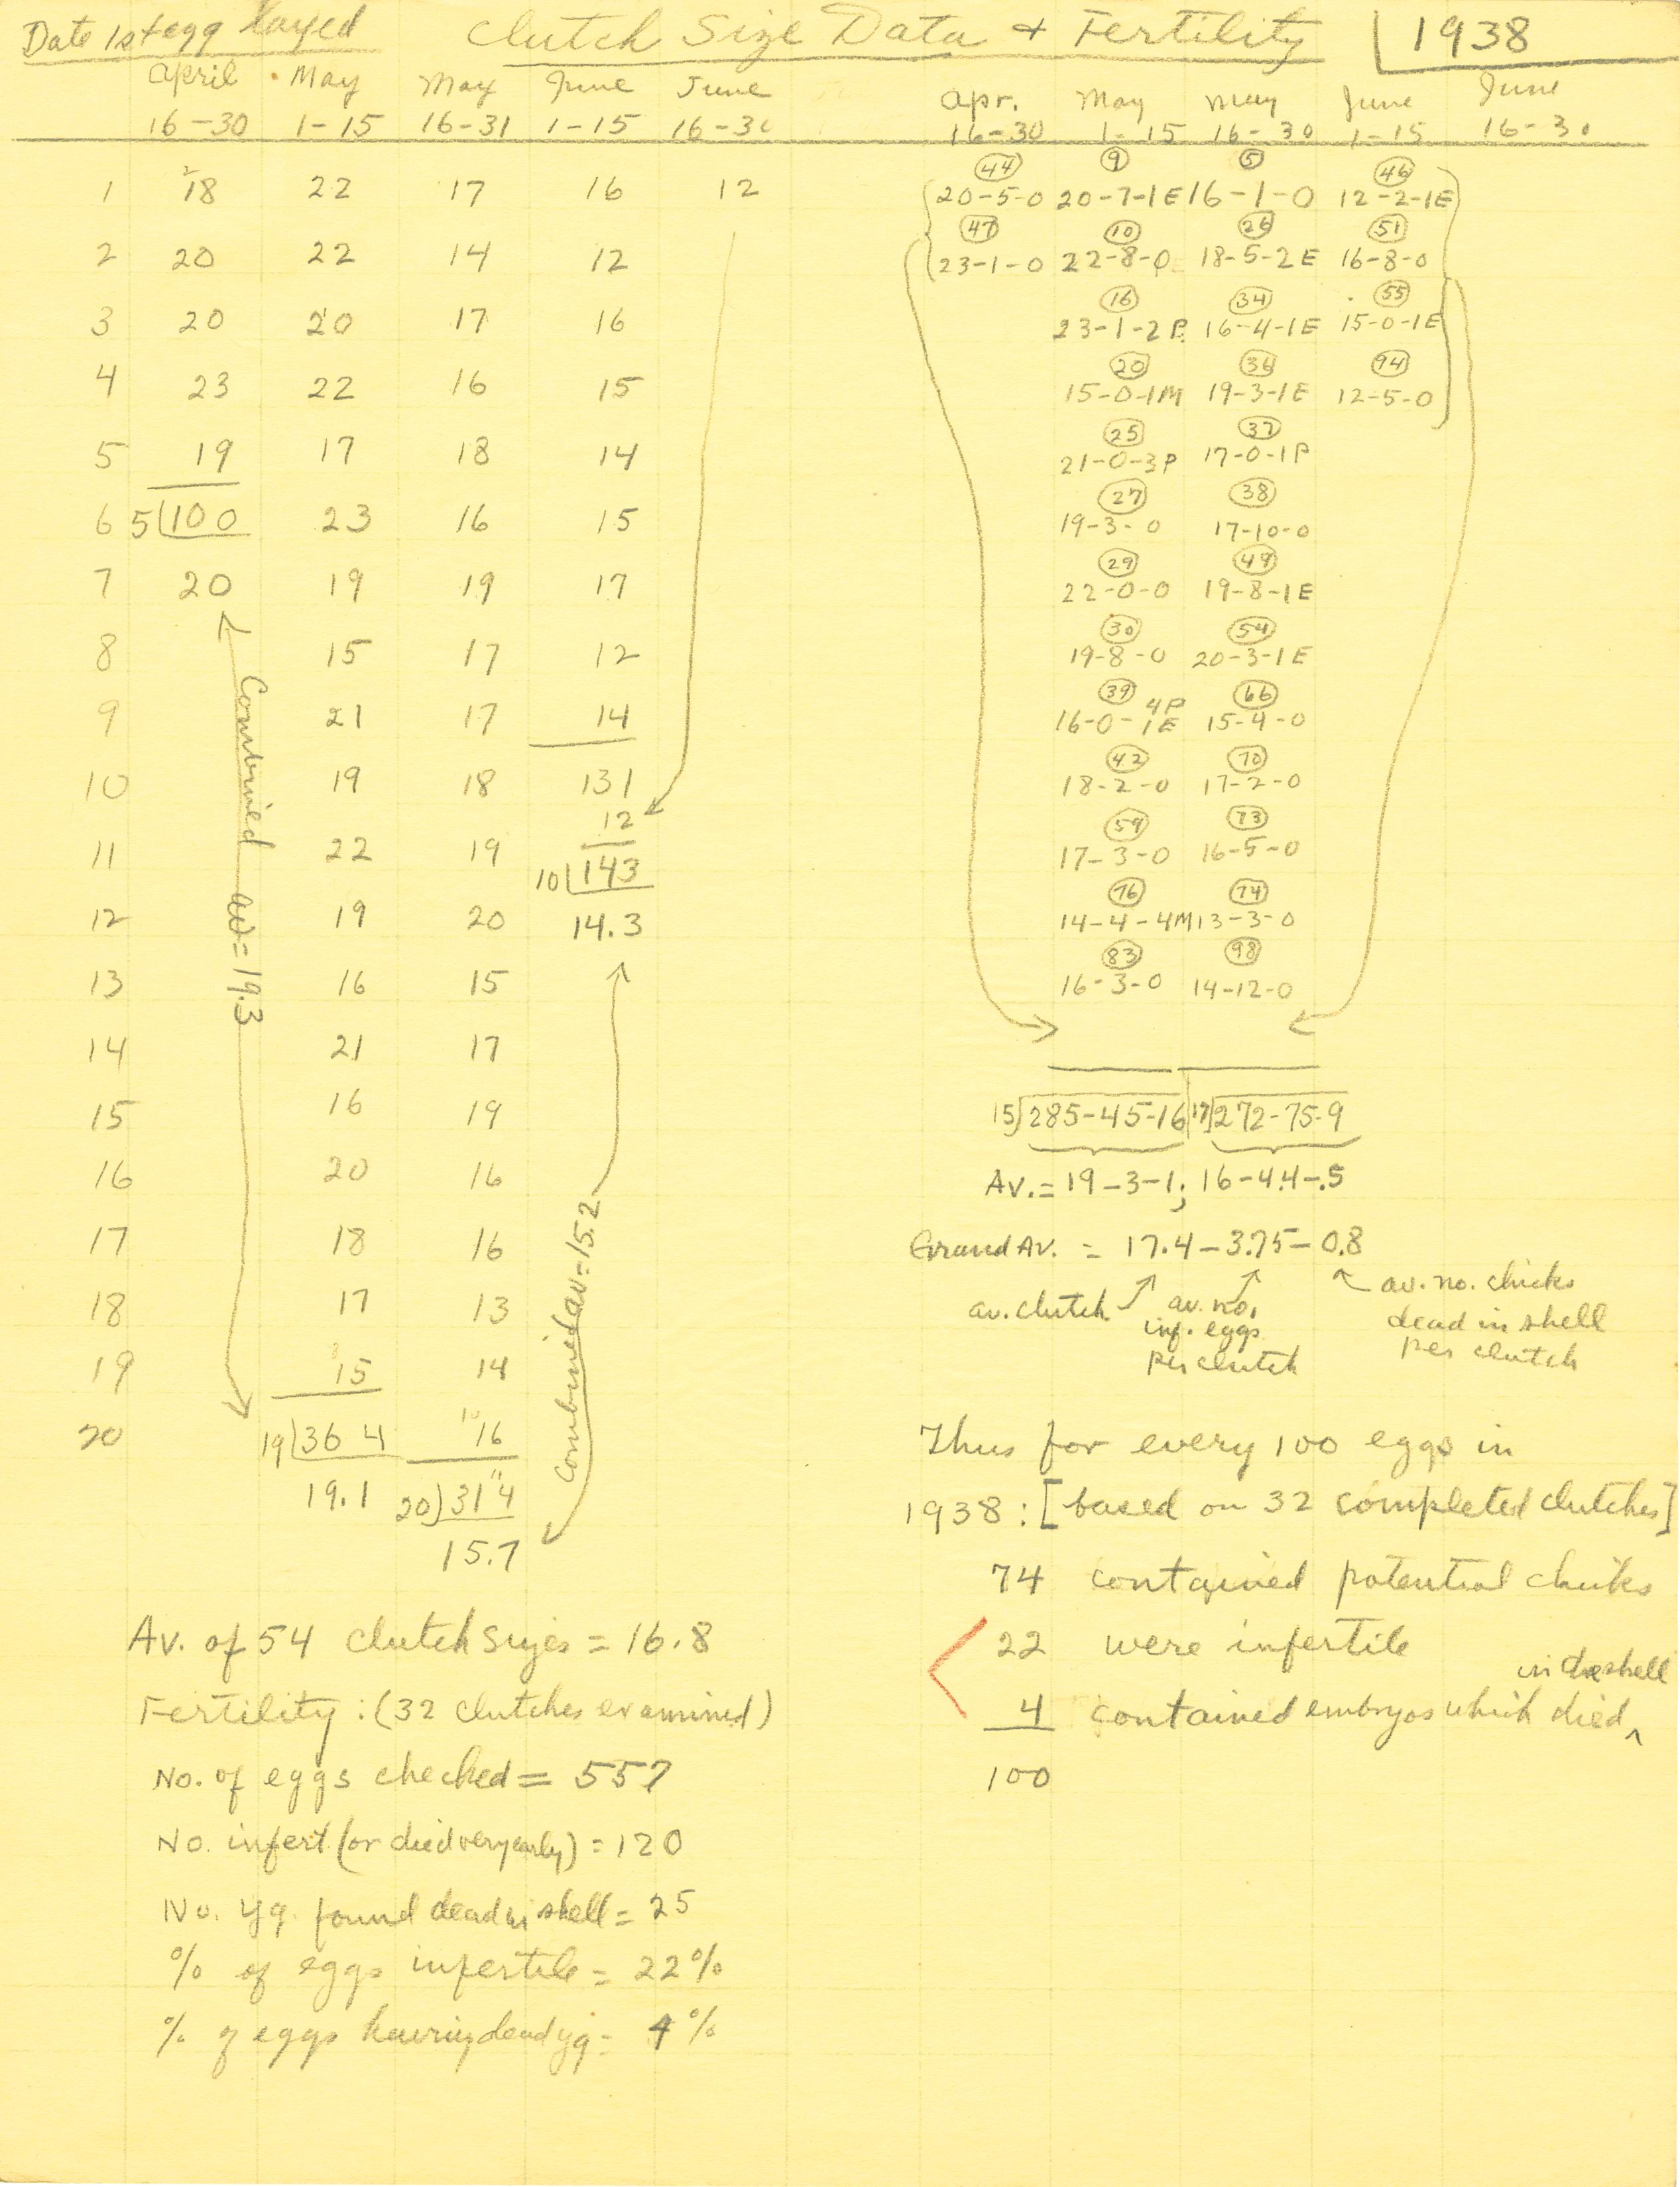 Date 1st egg layed Clutch Size Data + Fertility 1938
April May May June June
16-30 1-15 16-31 1-15 16-30
Apr. May May June June
16-30 1-15 16-30 1-15 16-30
1 18 22 17 16 12
2 20 22 14 12
3 20 20 17 16
4 23 22 16 15
5 19 17 18 14
6 5 100 23 16 15
7 20 19 19 17
8 15 17 12
9 21 17 14
10 19 18 131
12
11 22 19 10 143
12 19 20 14.3
13 16 15
14 21 17
15 16 19
16 20 16
17 18 16
18 17 13
19 15 14
20 19 364 16
19.1 20 314
15.7
Combined av = 19.3
Combined av = 15.2
44 9 5 46
20-5-0 20-7-1E 16-1-0 12-2-1E
47 10 26 51
23-1-0 22-8-0 18-5-2E 16-8-0
16 34 55
23-1-2P. 16-4-1E 15-0-1E
20 36 94
15-0-1M 19-3-1E 12-5-0
25 37
21-0-3P 17-0-1P
27 38
19-3-0 17-10-0
29 49
22-0-0 19-8-1E
30 54
19-8-0 20-3-1E
39 4P 66
16-0-1E 15-4-0
42 70
18-2-0 17-2-0
59 73
17-3-0 16-5-0
76 74
14-4-4M 13-3-0
83 98
16-3-0 14-12-0
15 285-45-16 17 272-75-9
Av. = 19-3-1; 16-4.4-.5
Grand Av. = 17.4-3.75-0.8
av. clutch
av. no.
inf. eggs
per clutch
av. no. chicks
dead in shell
per clutch
Thus for every 100 eggs in
1938: [based on 32 completed clutches]
74 contained potential chicks
22 were infertile
in the shell
4 contained embryos which died ^
100
Av. of 54 clutch sizes = 16.8
Fertility: (32 clutches examined)
No. of eggs checked = 557
No. infert (or died very early) = 120
No. yg. found dead in shell = 25
% of eggs infertile = 22%
% of eggs having dead yg = 4%